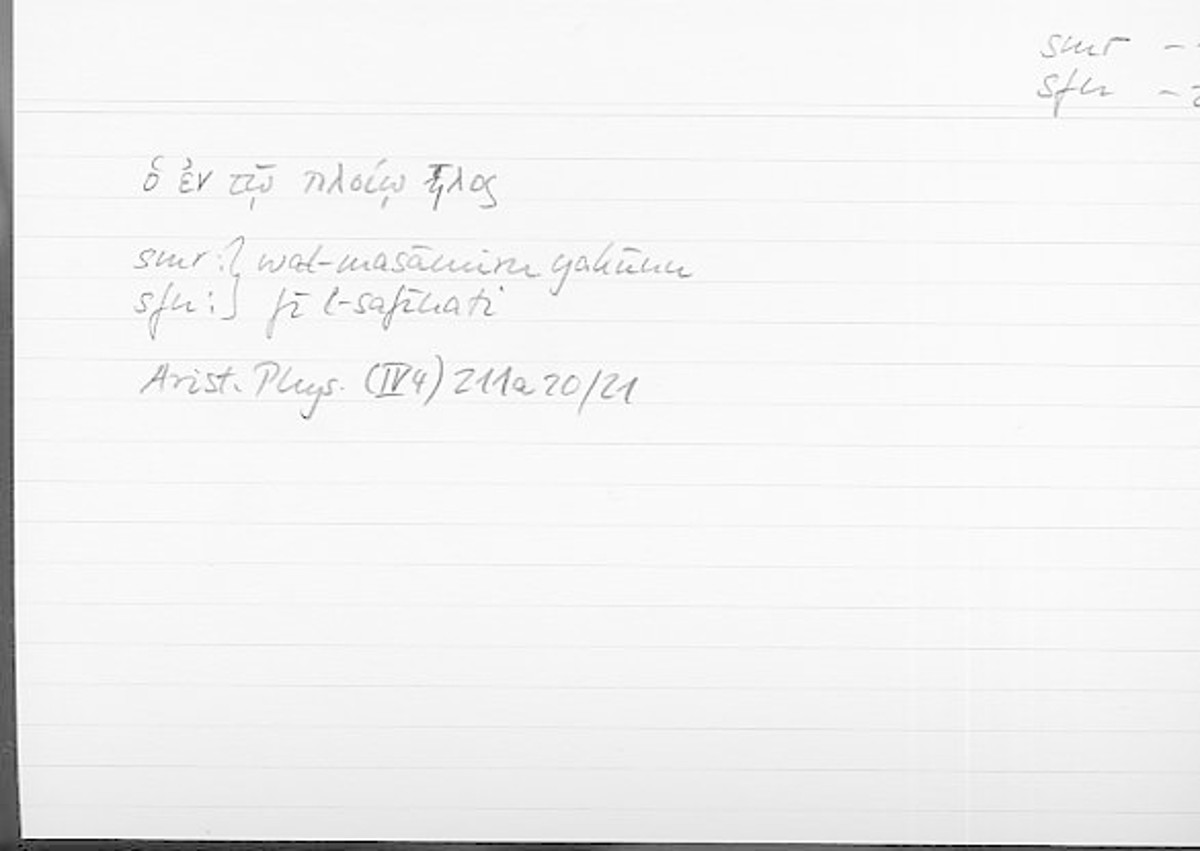 smr -
sfn -
ὁ ἐν τῷ πλοίῳ ἧλος
smr:} wal-masāmiru yakūnu
sfn:} fī l-safīnati
Arist. Phys. (IV 4) 211a 20/21